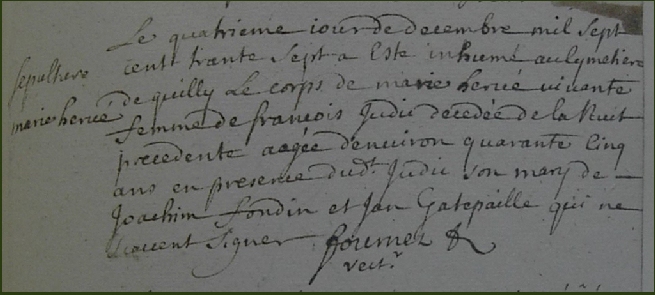 Le quatrieme iour de decembre mil sept
cent trante sept a Este inhumé au Cymetiere
sepulture
de quilly Le corps de marie hervé vivante
marie hervé
femme de francois Judic decedée de la Nuit
precedente aagée denviron quarante Cinq
ans en presence dudt Judic son mary de
Joachim fondin et Jan Gatepaille qui ne
scavent signer fournet
rectr